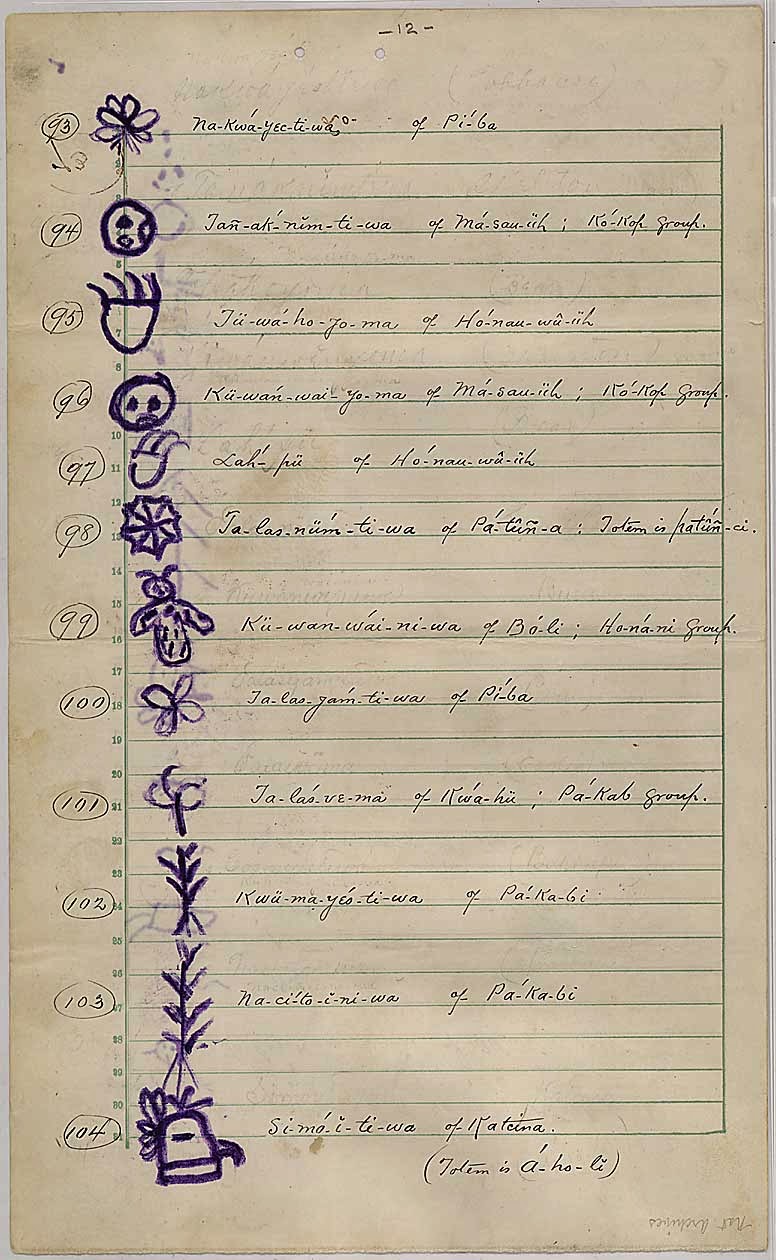 -12-
93 Na-kwá-yec-ti-wa of Pí-ba
94 Tañ-ak-nĭm-ti-wa of Má-sau-üh ; Kó-Kop group.
95 Tü-wá-ho-yo-ma of Hó-nau-wû-üh
96 Kü-wań-wai-yo-ma of Má-sau-üh ; Kó-Kop Group.
97 Lah-pü of Hó-nau-wû-üh
98 Ta-las-nüḿ-ti-wa of Pá-tûñ-a : Totem is patûñ-ci.
99 Kü-wan-wái-ni-wa of Bó-li ; Ho-ná-ni Group.
100 Ta-las-yaḿ-ti-wa of Pí-ba
101 Ta-lás-ve-ma of Kwá-hü ; Pá-Kab Group.
102 Kwü-ma-yés-ti-wa of Pá-Ka-bi
103 Na-cí-to-ĭ-ni-wa of Pá-Ka-bi
104 Si-mó-ĭ-ti-wa of Katcina.
(Totem is Á-ho-lĭ)
Nat Archives